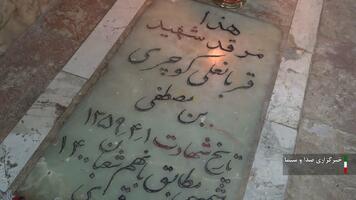 هذا
مرقد شهید
قربانعلی کوچری
بن مصطفی
تاریخ شهادت ۱۳۵۹٫۴٫۱
مطابق با نهم شعبان ۱۴۰۰
خبرگزاری صدا و سیما